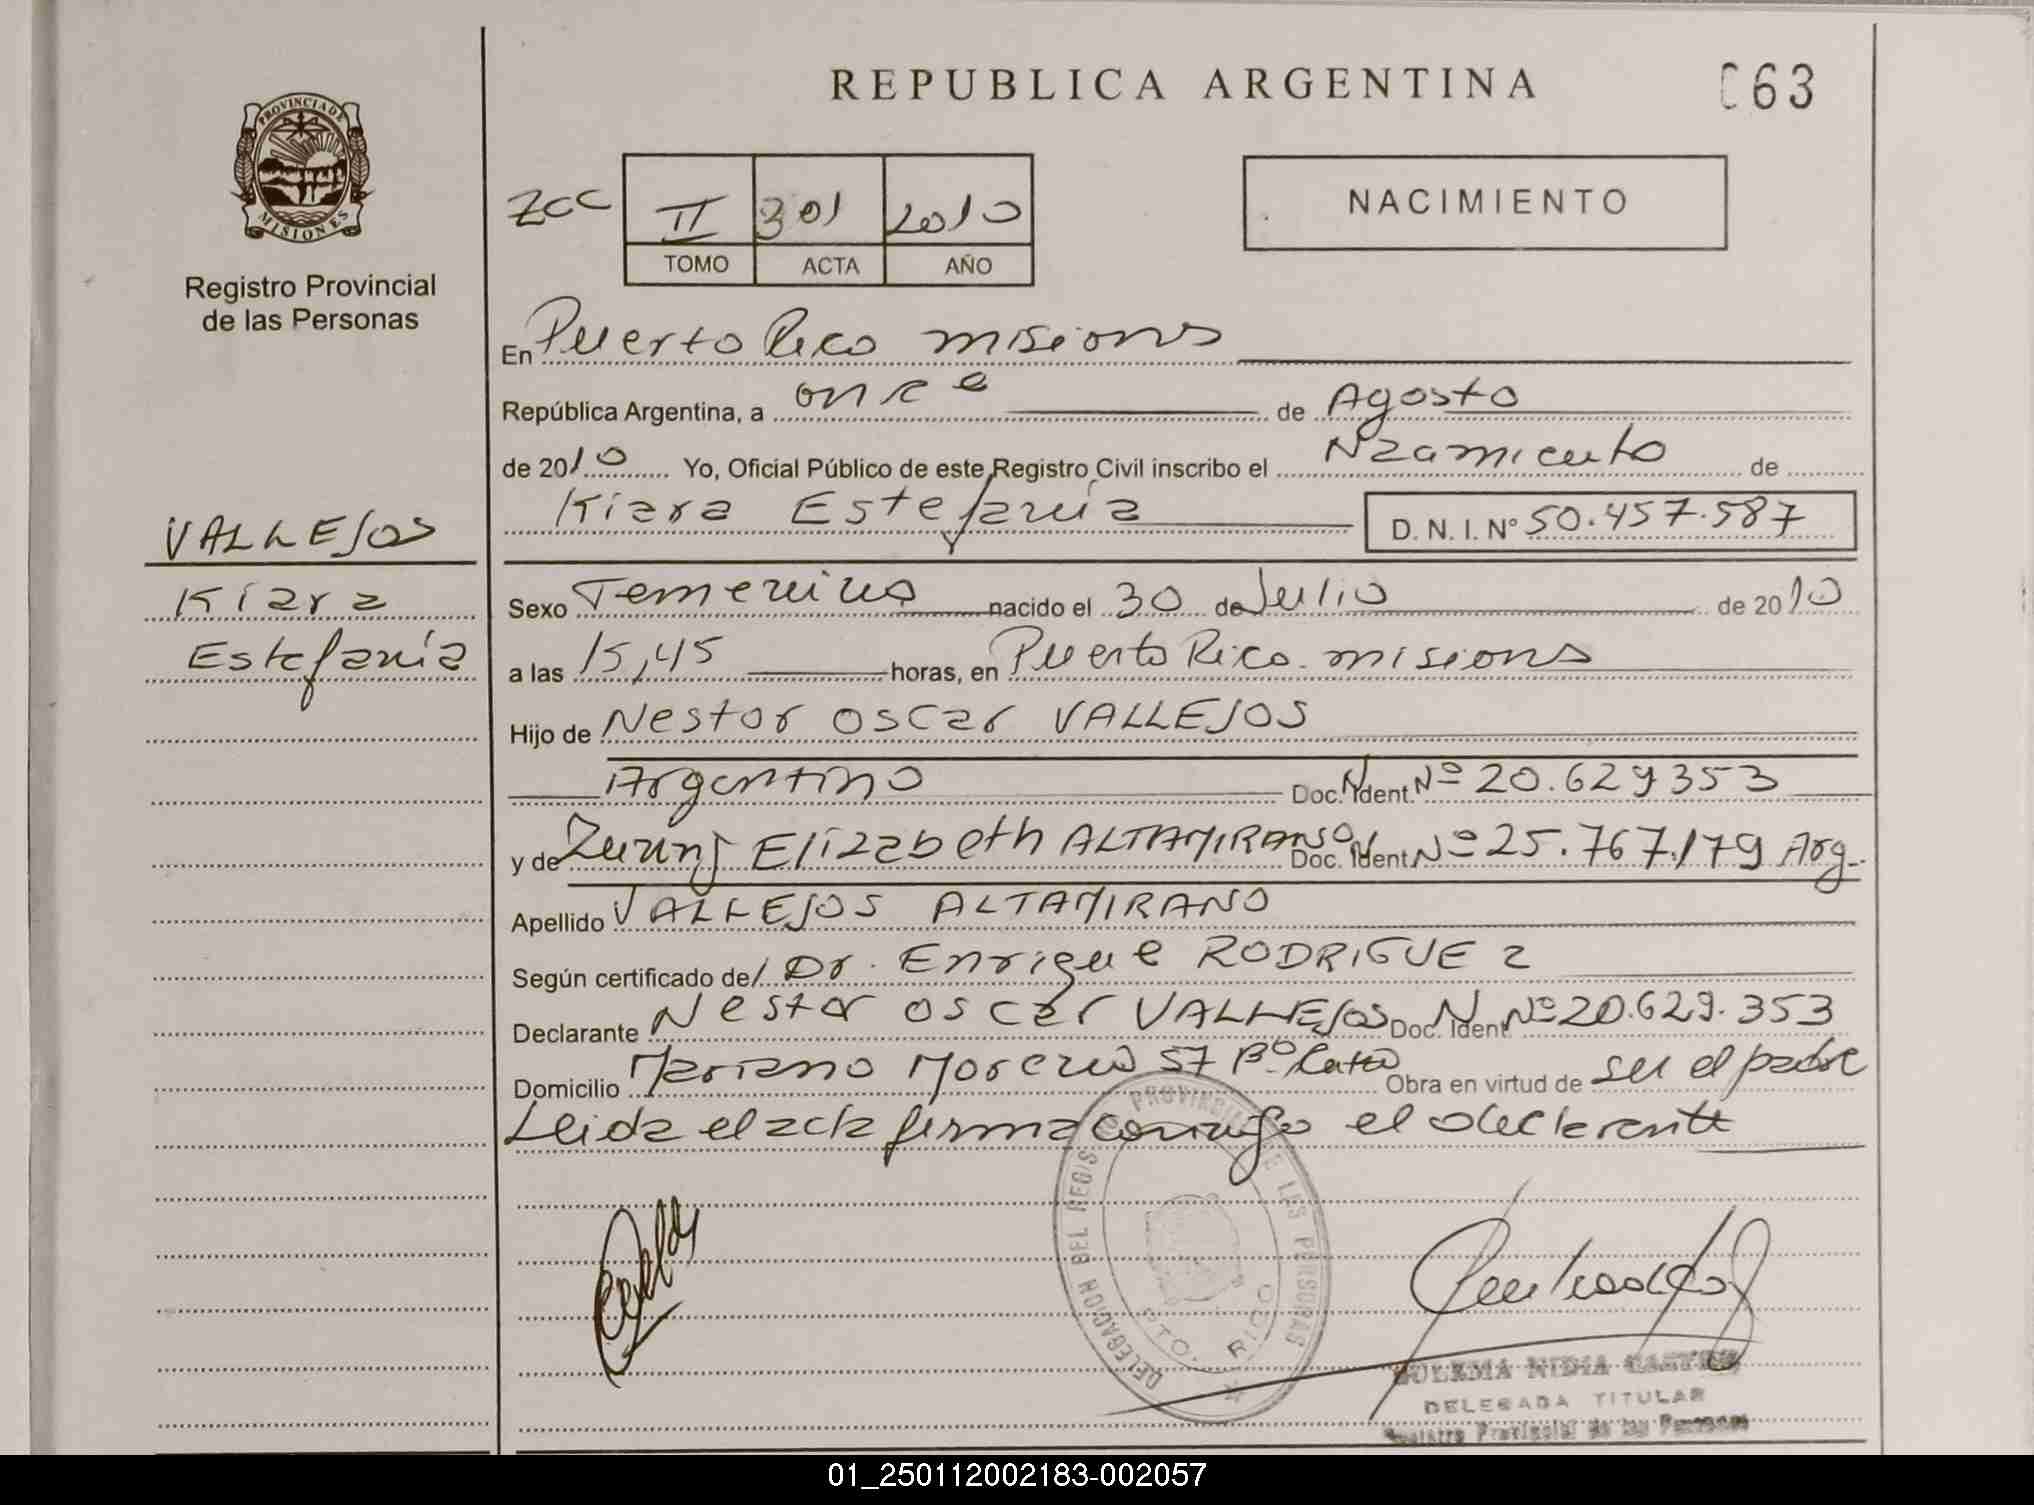 REPUBLICA ARGENTINA
063
PROVINCIA DE
MISIONES
Registro Provincial
de las Personas
ZCC II 301 2010
TOMO ACTA AÑO
NACIMIENTO
En Puerto Rico misions
República Argentina, a once de Agosto
de 2010 Yo, Oficial Público de este Registro Civil inscribo el Nzamiento de
Kiara Estefanía D. N. I. Nº 50.457.587
VALLEJOS
Kiara
Estefanía
Sexo Femenino nacido el 30 de Julio de 2010
a las 15,45 horas, en Puerto Rico. misions
Hijo de Nestor Oscar VALLEJOS
Argentino Doc. N Ident. Nº 20.629353
y de Elizabeth ALTAMIRANO Doc. Ident Nº 25.767.179 Arg.
Apellido VALLEJOS ALTAMIRANO
Según certificado de/ Dr. Enrique RODRIGUEZ
Declarante Nestor Oscar VALLEJOS Doc. N Ident Nº 20.629.353
Domicilio Mariano Moreno 57 Bº Obra en virtud de ser el padre
Leida el acta firma conmigo el declarante
DELEGACION DEL REGIS. PROVINCIAL DE LES PERSONAS
PTO. RICO
NIDIA
DELEGADA TITULAR
Registro Provincial de las Personas
01_250112002183-002057